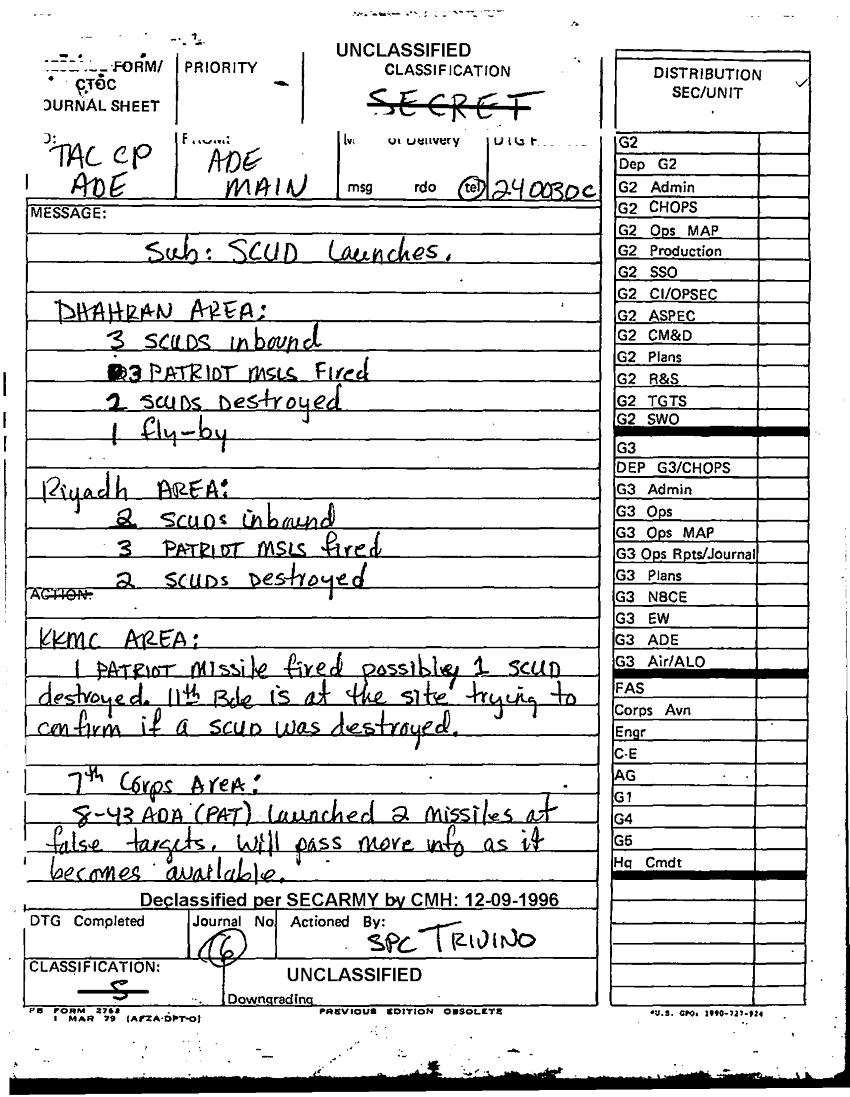 UNCLASSIFIED
FORM/
CTOC
OURNAL SHEET
PRIORITY
CLASSIFICATION
SECRET
TAC CP
ADE
ADE
MAIN
of Delivery
msg rdo tel
DTG
240030C
MESSAGE:
Sub: SCUD Launches.
DHAHRAN AREA:
3 SCUDS inbound
3 PATRIOT MSLS Fired
2 SCUDS Destroyed
1 fly-by
Riyadh AREA:
2 SCUDS inbound
3 PATRIOT MSLS fired
2 SCUDS Destroyed
ACTION:
KKMC AREA:
1 PATRIOT Missile fired possibley 1 SCUD
destroyed. 11th Bde is at the site trying to
confirm if a SCUD was destroyed.
7th Corps AreA:
8-43 ADA (PAT) launched 2 missiles at
false targets. Will pass more info as it
becomes available.
Declassified per SECARMY by CMH: 12-09-1996
DTG Completed
Journal No
16
Actioned By:
SPC TRIVINO
CLASSIFICATION:
S
UNCLASSIFIED
Downgrading
FORM 2768
1 MAR 79 (AFZA-DPT-O)
PREVIOUS EDITION OBSOLETE
DISTRIBUTION
SEC/UNIT
G2
Dep G2
G2 Admin
G2 CHOPS
G2 Ops MAP
G2 Production
G2 SSO
G2 CI/OPSEC
G2 ASPEC
G2 CM&D
G2 Plans
G2 R&S
G2 TGTS
G2 SWO
G3
DEP G3/CHOPS
G3 Admin
G3 Ops
G3 Ops MAP
G3 Ops Rpts/Journal
G3 Plans
G3 NBCE
G3 EW
G3 ADE
G3 Air/ALO
FAS
Corps Avn
Engr
C-E
AG
G1
G4
G5
Hq Cmdt
*U.S. GPO: 1990-727-924